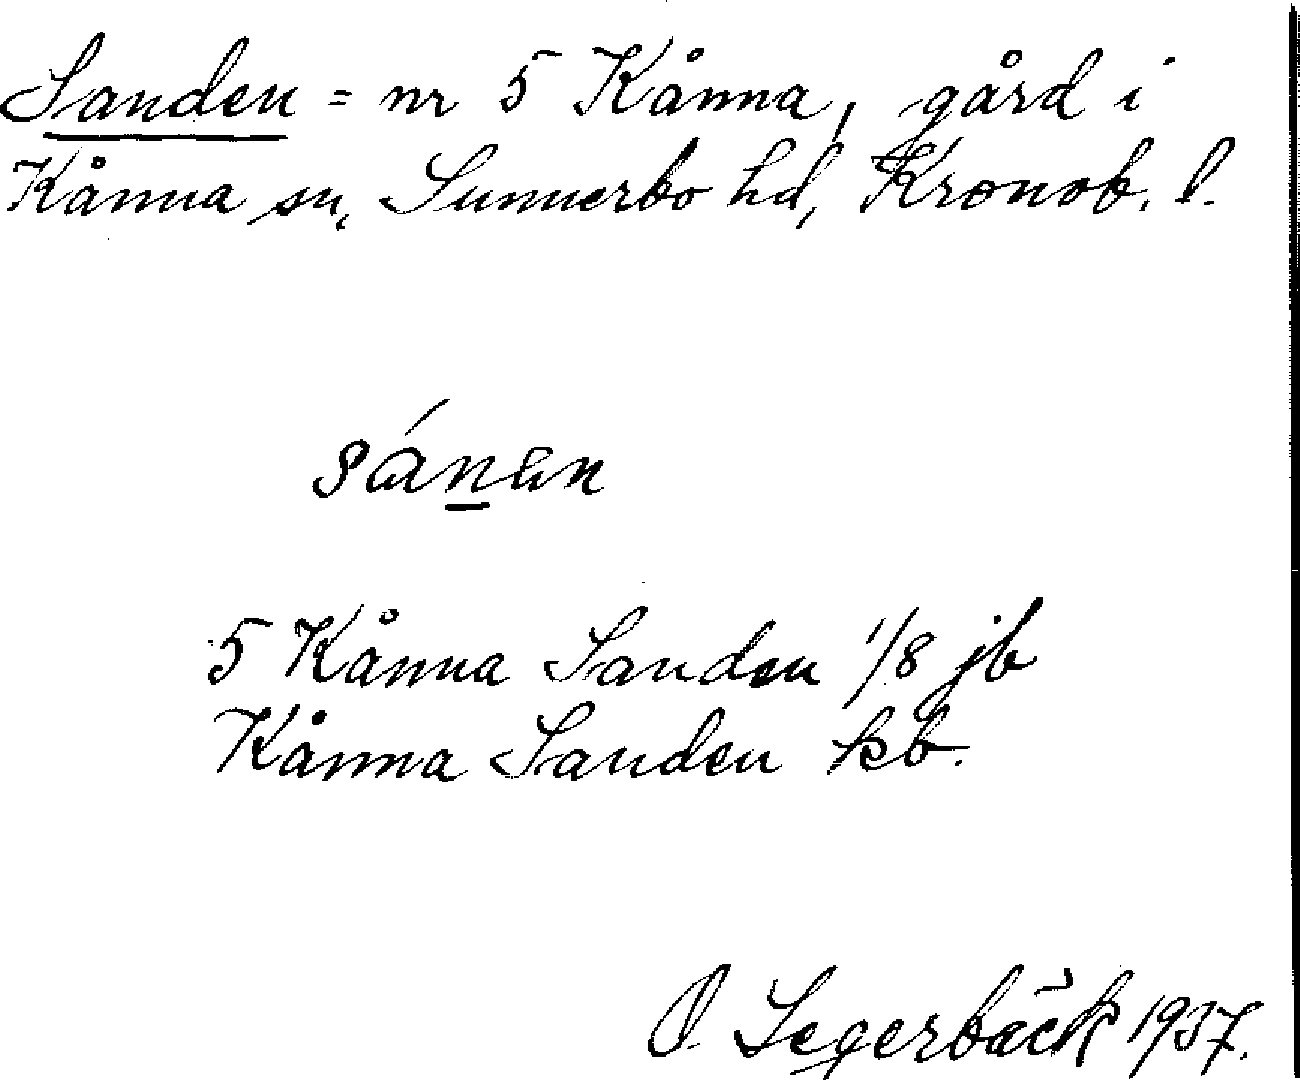 Sanden = nr 5 Kånna, gård i
Kånna sn, Sunnerbo hd, Kronob. l.
sánen
5 Kånna Sanden 1/8 jb
Kånna Sanden kb.
O Segerbäck 1937.